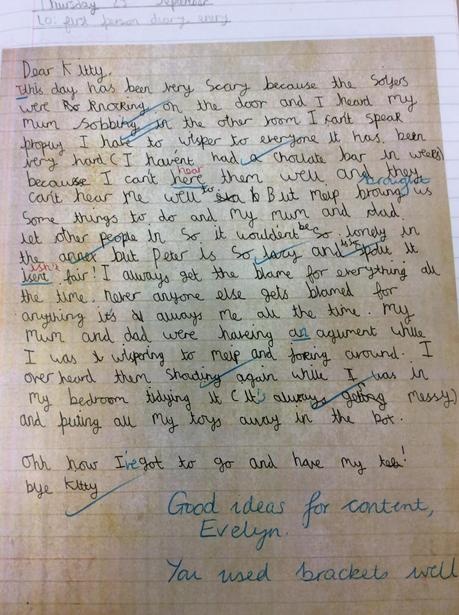 Thursday 23 September
Lo: first person diary entry
Dear Kitty,
This day has been very scary because the Soljers
were knocking on the door and I heard my
Mum sobbing in the other room I can't speak
propley I hate to wisper to everyone it has been
very hard (I haven't had a choclate bar in weeks)
hear
because I can't here them well and they
brought
can't hear me well to But meip broung us
Some things to do and My mum and dad
let other people in So it wouldent be So lonely in
the annex but Peter is So lazy and spoilt it
isn't
isent fair! I always get the blame for everything all
the time. never anyone else gets blamed for
anything it's always me all the time. My
Mum and dad were haveing an agument while
I was wisporing to Meip and joking around. I
over heard them Shouting again while I was in
my bedroom tidying it (It's always getting messy)
and puting all my toys away in the box.
Ohh how I've got to go and have my tea!
bye Kitty
Good ideas for content,
Evelyn.
You used brackets well